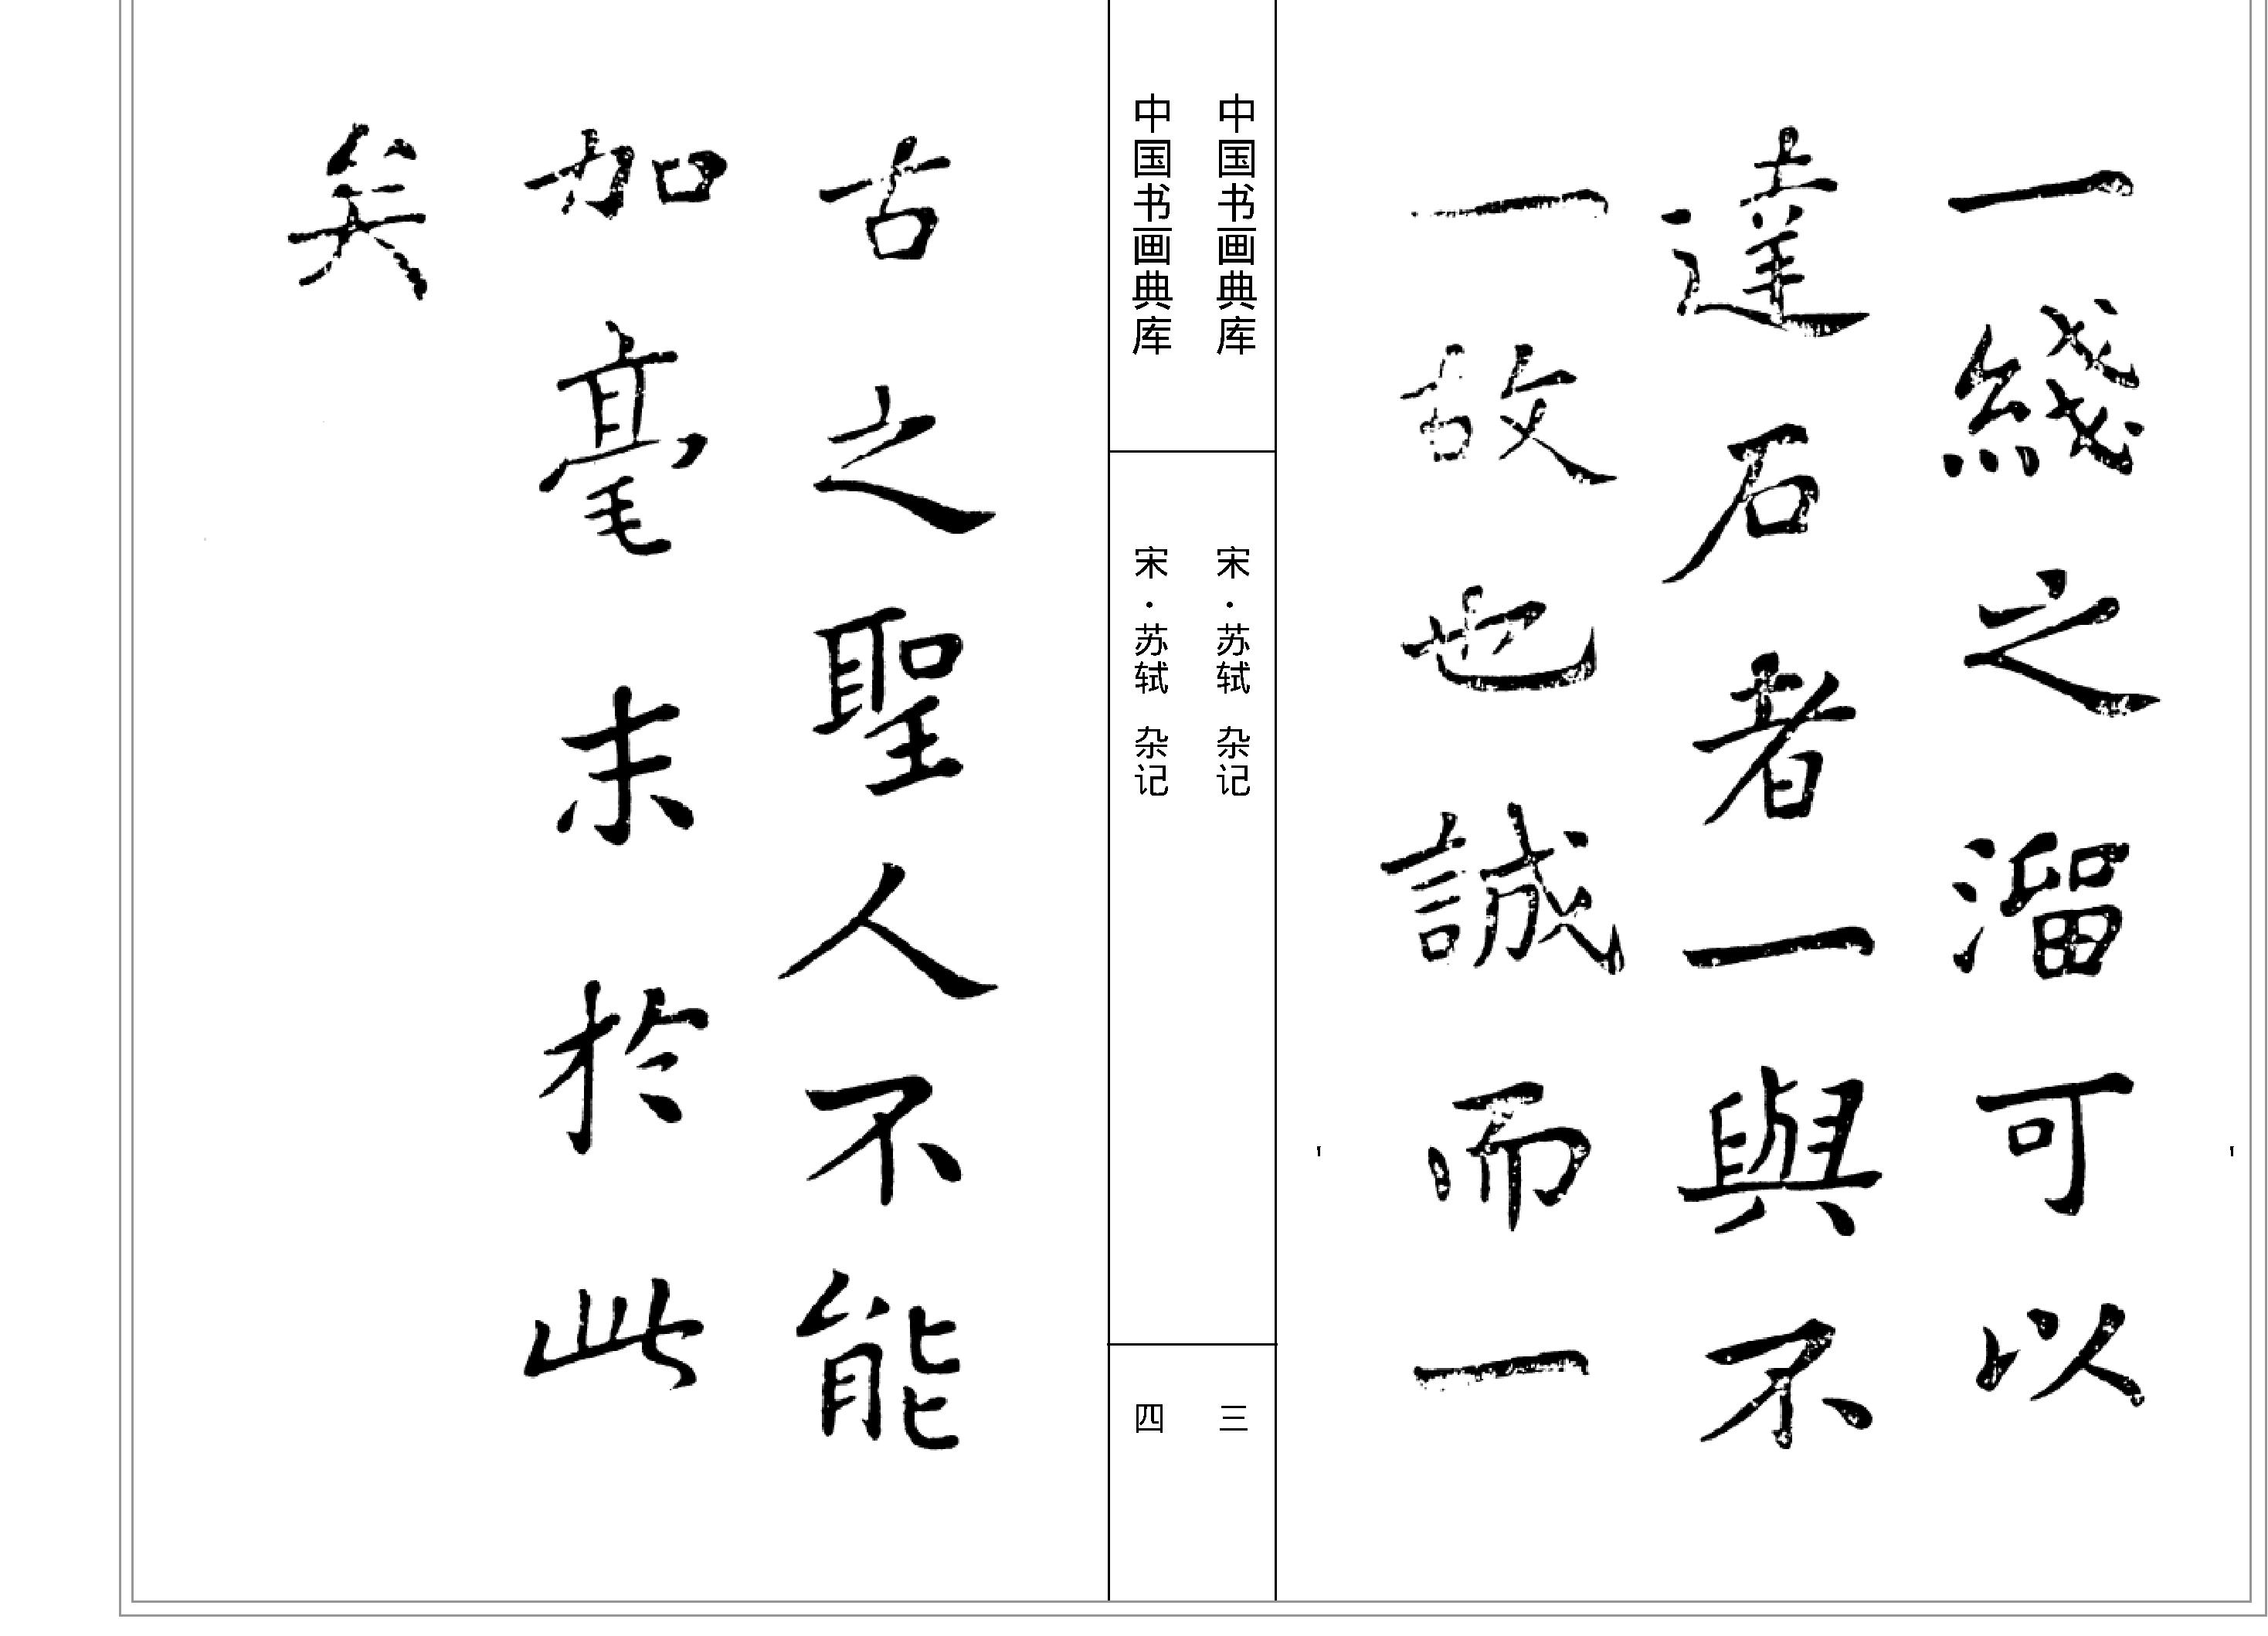 一綫之溜可以
達石者一與不
一故也誠而一
中国书画典库 宋·苏轼 杂记 三
中国书画典库 宋·苏轼 杂记 四
古之聖人不能
加毫末於此
矣